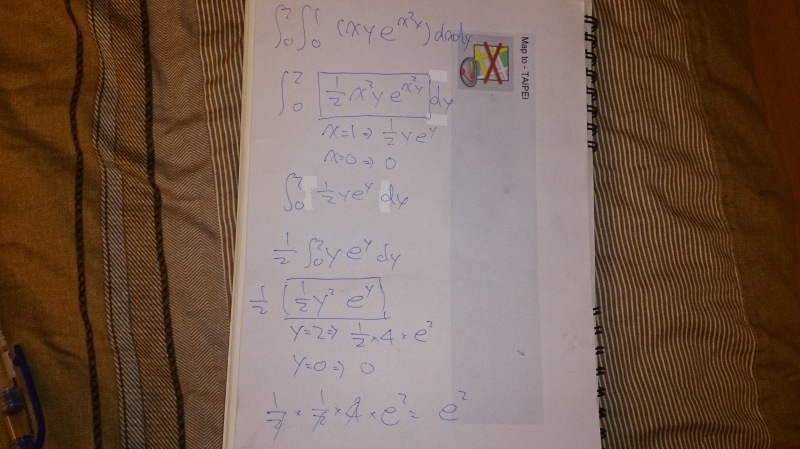 ∫₀² ∫₀¹ (xye^{x²y}) dxdy
Map to - TAIPEI
∫₀² [½x²y e^{x²y}] dy
x=1 ⇒ ½ye^y
x=0 ⇒ 0
∫₀² ½ye^y dy
½ ∫₀² ye^y dy
½ (½y² e^y)
y=2 ⇒ ½×4×e²
y=0 ⇒ 0
½ × ½ × 4 × e² = e²